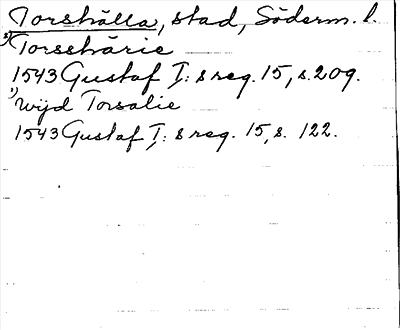 Torshälla, stad, Söderm. l.
2) Torsshärie
1543 Gustaf I: s reg. 15, s. 209.
1) Wijd Torsalie
1543 Gustaf I: s reg. 15, s. 122.